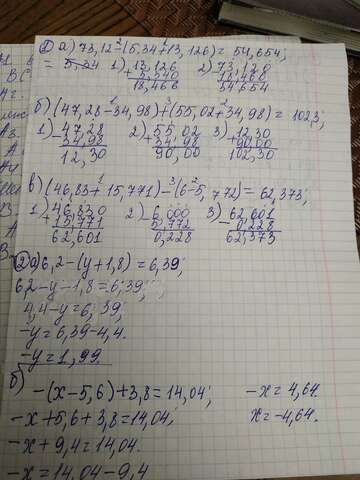 ① а) 73,12-(5,34+13,126)=54,654;
= 5,34 1) 13,126 2) 73,120
+ 5,340 - 18,466
18,466 54,654
б) (47,28-34,98)+(55,02+34,98)=102,3;
1) 47,28 2) 55,02 3) 12,30
- 34,98 + 34,98 + 90,00
12,30 90,00 102,30
в) (46,83+15,771)-(6-5,772)=62,373;
1) 46,830 2) 6,000 3) 62,601
+ 15,771 - 5,772 - 0,228
62,601 0,228 62,373
② а) 6,2-(y+1,8)=6,39;
6,2-y-1,8=6,39;
4,4-y=6,39;
-y=6,39-4,4.
-y=1,99.
б)
-(x-5,6)+3,8=14,04; -x=4,64.
-x+5,6+3,8=14,04; x=-4,64.
-x+9,4=14,04.
-x=14,04-9,4